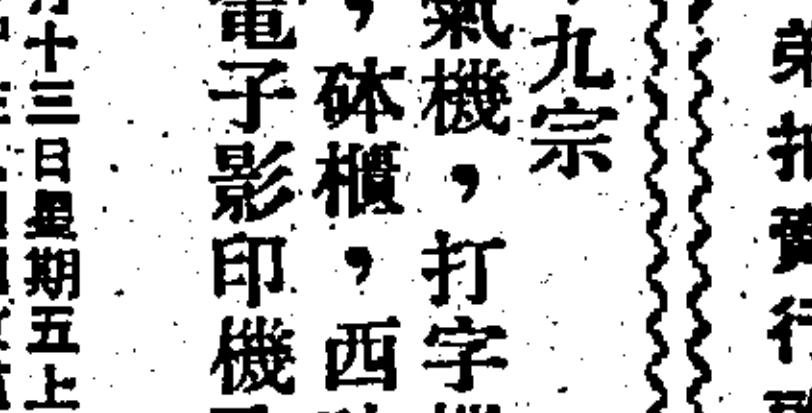 拍賣行
九宗
氣機，打字
，砵櫃，西
電子影印機
十三日星期五上